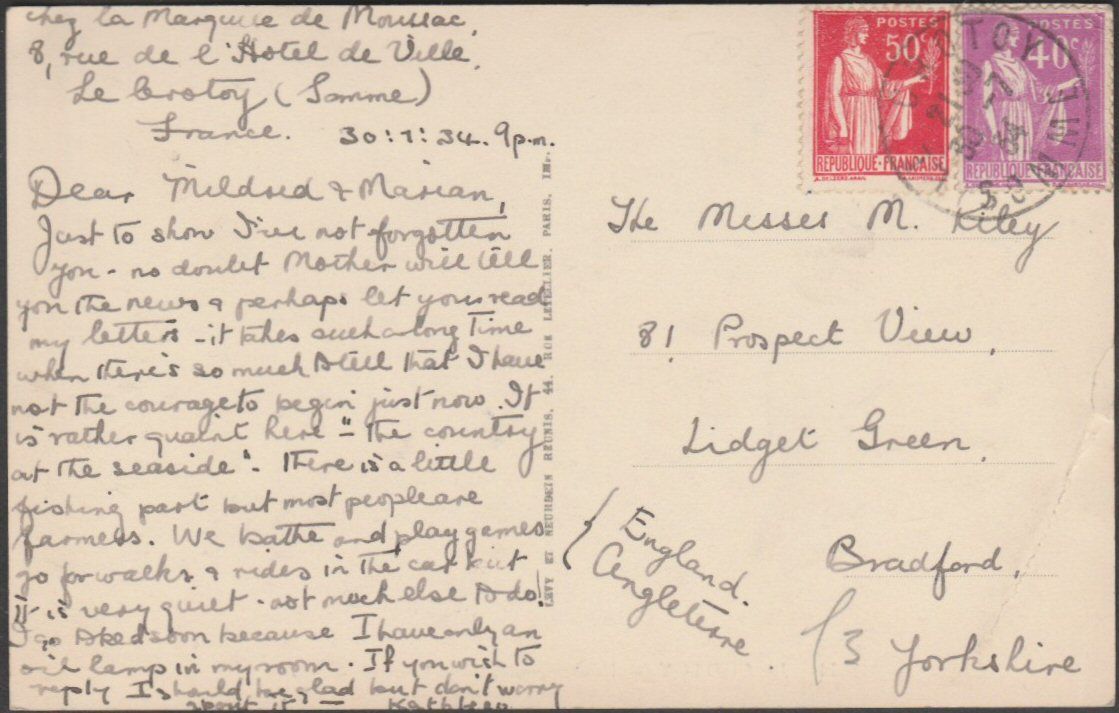 chez la Marquise de Moussac
8, rue de l'Hotel de Ville,
Le Crotoy (Somme)
France. 30:7:34. 9p.m.
Dear Mildred & Marian,
Just to show I've not forgotten
you - no doubt Mother will tell
you the news & perhaps let you read
my letters - it takes such a long time
when there's so much to tell that I have
not the courage to begin just now. It
is rather quaint here "- the country
at the seaside". There is a little
fishing part but most people are
farmers. We bathe and play games
go for walks & rides in the car but
it is very quiet - not much else to do!
I go to bed soon because I have only an
oil lamp in my room. If you wish to
reply I should be glad but don't worry
about it — Kathleen
LEVY ET NEURDEIN REUNIS, 44, RUE LETELLIER, PARIS, IMP.
POSTES
50c
REPUBLIQUE·FRANÇAISE
POSTES
40c
REPUBLIQUE FRANÇAISE
The Misses M. Riley
81 Prospect View,
Lidget Green,
Bradford,
Yorkshire
England.
Angleterre